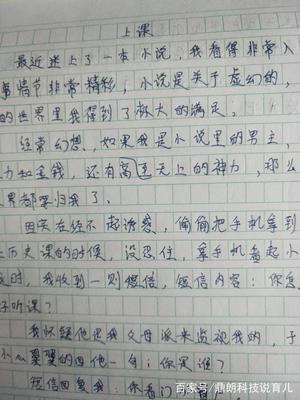 上课
最近迷上了一本小说，我看得非常入
事情节非常精彩，小说是关于虚幻的，
的世界里我得到了极大的满足。
经常幻想，如果我是小说里的男主，
力和金钱，还有高过天上的神力，那么
界都要归我了。
因实在经不起诱惑，偷偷把手机拿到
上历史课的时候，没忍住，拿手机看起小
时，我收到一则短信，短信内容：你怎
好听课？
我怀疑他是我父母派来监视我的，于
小心翼翼的回他一句：你是谁？
短信回复我：你看门
百家号/鼎朗科技说育儿